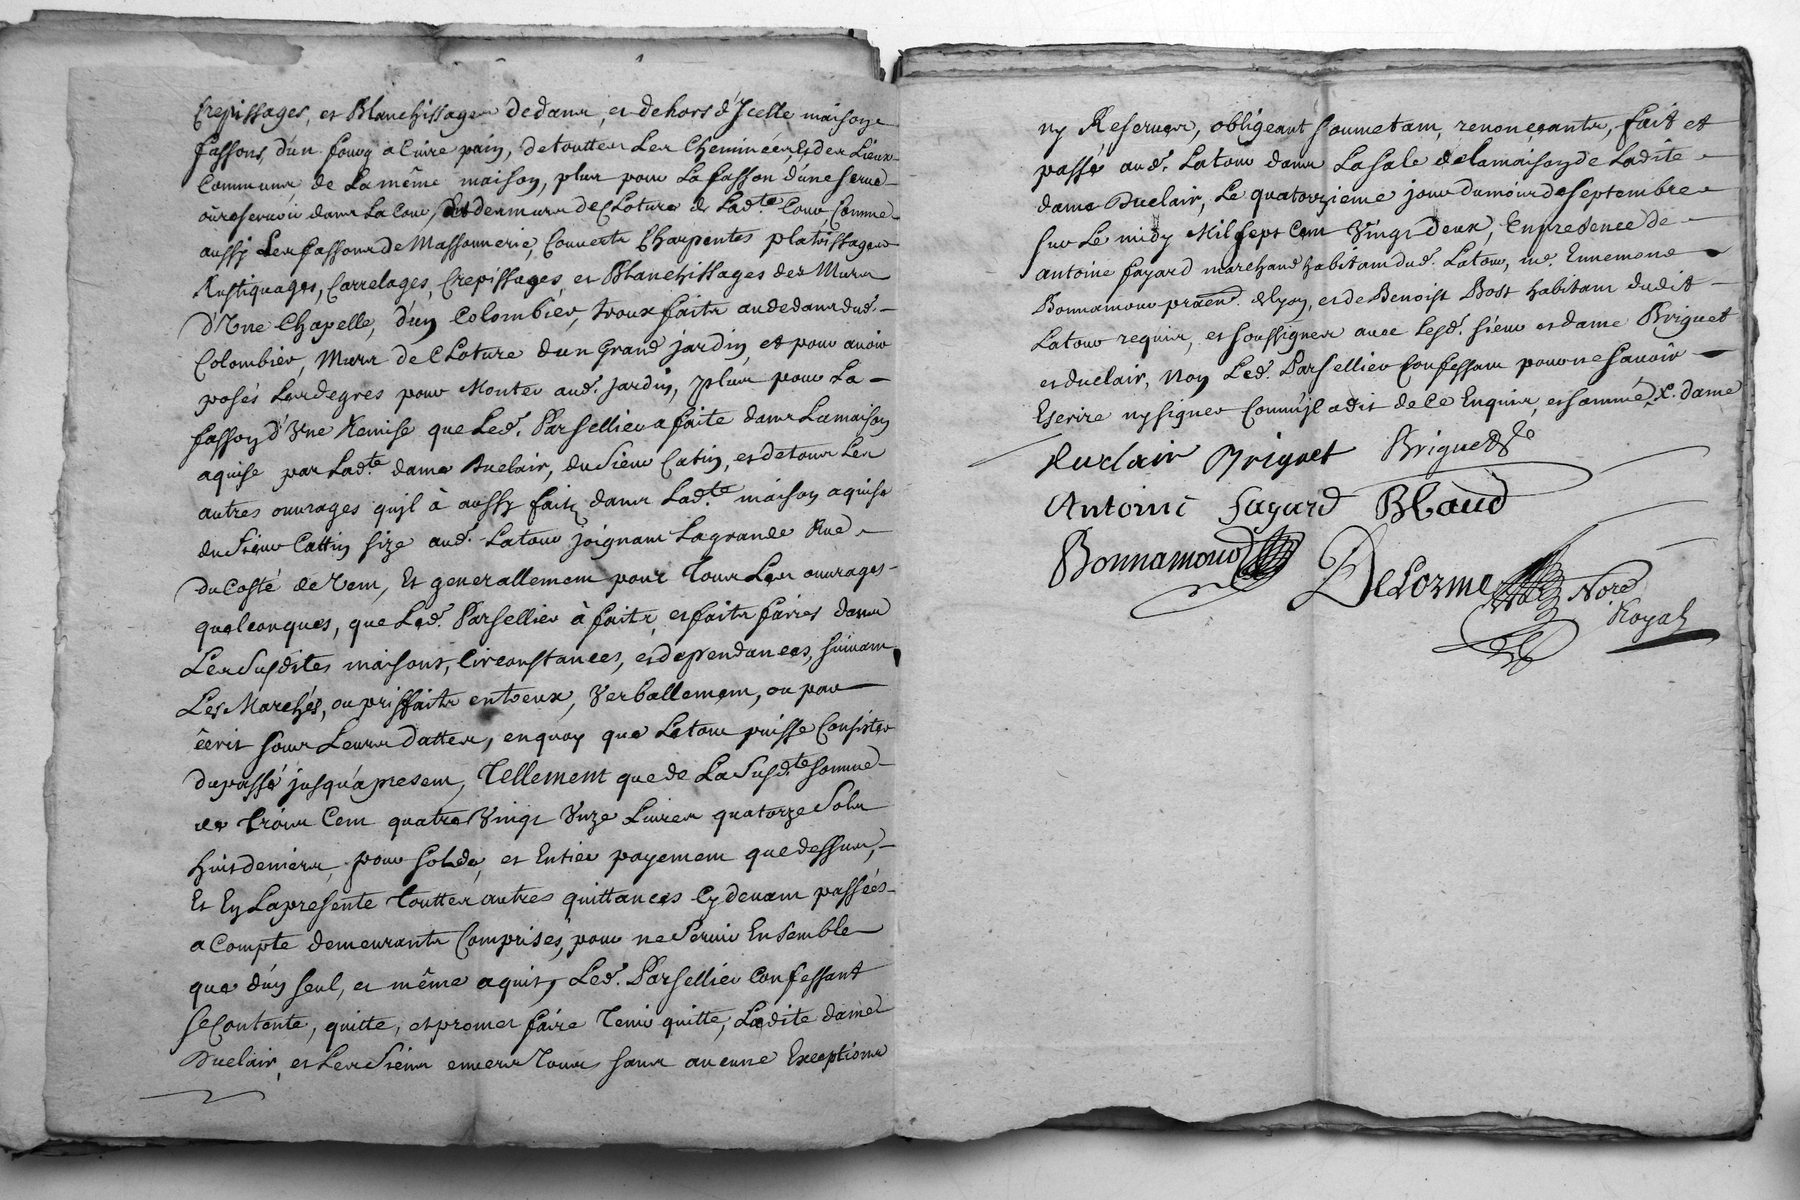 Crepissages, et Blanchissages dedans, et dehors d'Jcelle maison,
fassons d'un fourg a Cuire pain, detouttes Les Cheminées, Et des Lieux
Communs de La même maison, plus pour La fasson d'une serve
ou reservoir dans La Cour, Et des murs de Cloture de Lad.te Cour, Comme
aussy Les fassons de Massonnerie, Couverts Charpentes platrissages
Rustiquages, Carrelages, Crepissages, et Blanchissages des Murs
d'Vne Chapelle, d'un Colombier, troux faits audedans dud.
Colombier, Murs de Cloture d'un Grand jardin, et pour avoir
posés Les degres pour Monter aud. Jardin, plus pour La
fasson d'Vne Remise que Led. Parsellier a faite dans La maison
aquise par Lad.te dame Duclair, du Sieur Catin, et de tous Les
autres ouvrages qu'jl à aussy fait dans Lad.te maison aquise
du Sieur Cattin size aud. Latour joignant La grande Rue
du Costé de Vent, Et generallement pour Tous Les ouvrages
quelconques, que Led. Parsellier à faits, et faits faires dans
Les Susdites maisons, Circonstances, et dependances, suivant
Les Marchés, ou prisfaits entr'eux, Verballement, ou par
êcrit sous Leurs dattes, en quoy que Le tout puisse Consister
du passé jusqu'a present, Tellement que de La Susd.te somme
de trois Cent quatre Vingt Vnze Livres quatorze Sols
huit deniers, pour solde, et Entier payement que dessus,
Et En La presente touttes autres quittances Cy devant passées
a Compte demeurants Comprises, pour ne Servir Ensemble
que d'un seul, et même aquit, Led. Parsellier Confessant
se Contente, quitte, et promet faire Tenir quitte, Ladite dame
Duclair, et Les Siens envers Tous sans aucune Exceptions
ny Reserves, obligeant soumettant, renonçants, fait et
passé aud. Latour dans La Sale de la maison de Ladite
dame Duclair, Le quatorzieme jour du mois de Septembre
sur Le midy Mil sept Cent Vingt Deux, En presence de
antoine fayard marchand habitant dud. Latour, me. Ennemond
Bonnamour praend. de lyon, et de Benoist Bost habitant dudit
Latour requis, et soussignes avec Lesd. sieur et dame Briguet
et duclair, Non Led. Parsellier Confessant pour ne savoir
Escrire ny signer Comm'jl a dit de Ce Enquis, et sommé x. dame
Duclair Briguet Briguet
Antoine Fayard Blaud
Bonnamour DeLorme Nore
Royal